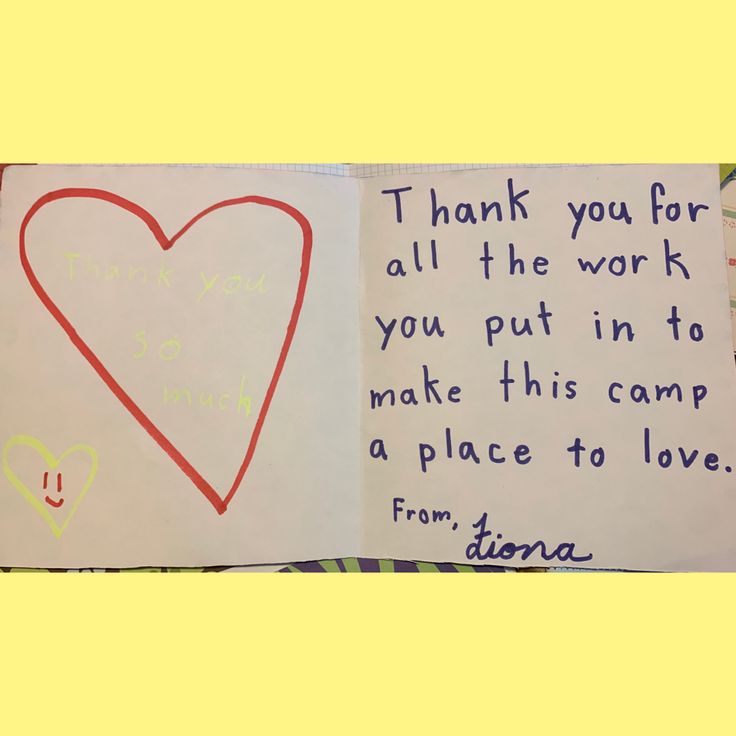 Thank you
so
much
Thank you for
all the work
you put in to
make this camp
a place to love.
From, Fiona